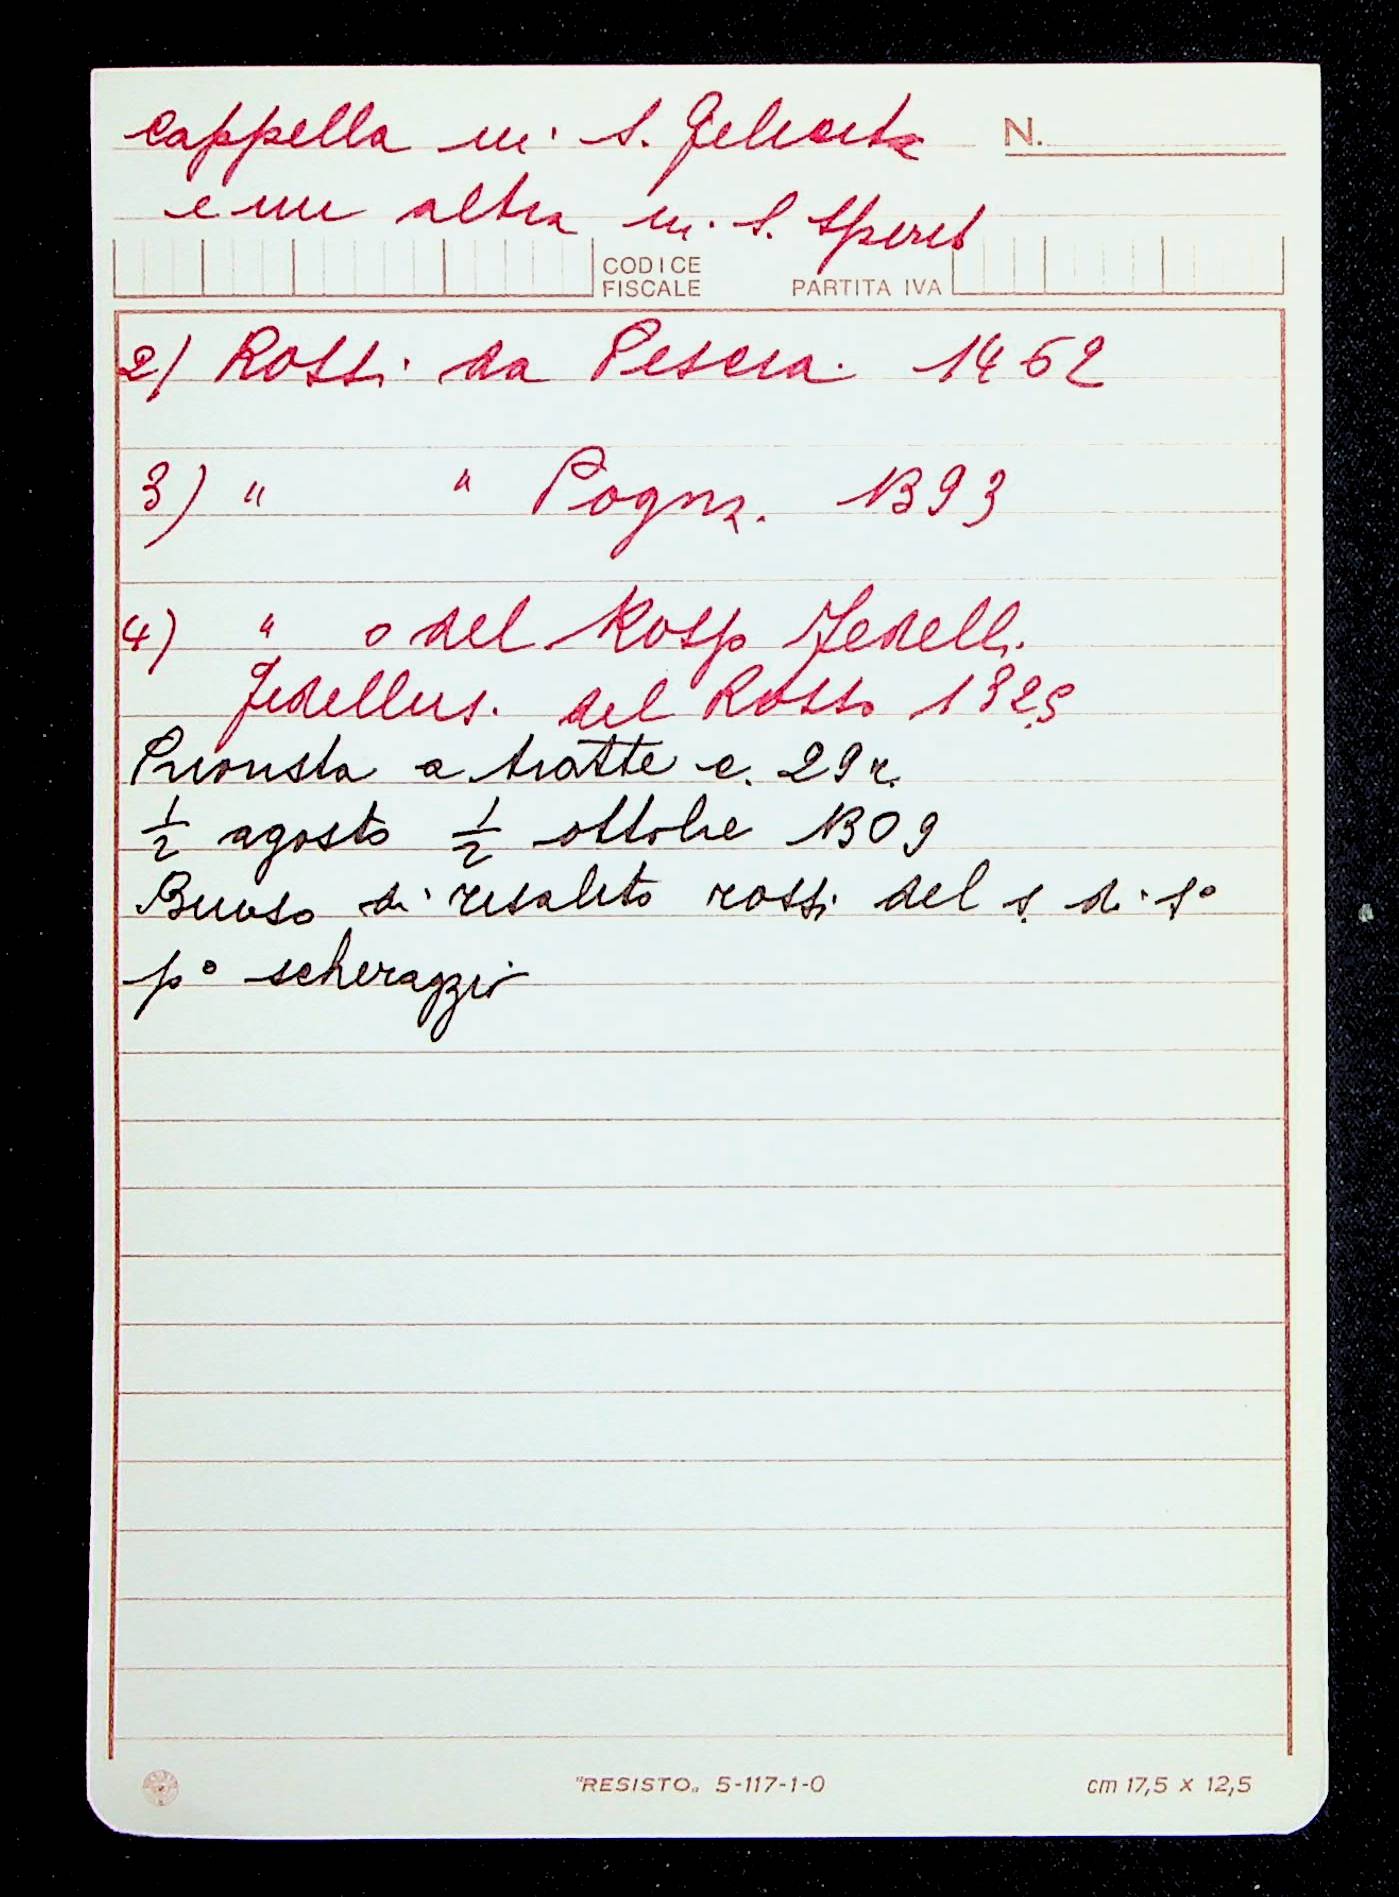 Cappella in S. Felicita
N.
e un altra in S. Spirit
CODICE FISCALE
PARTITA IVA
2) Rossi da Pescia. 1462
3) " " Pogna. 1393
4) " o del Rosso Fedelli.
Fedellus. del Rosso 1325
Priorista a tratte c. 29 r.
1/2 agosto 1/2 ottobre 1309
Buoso di risalito rossi del s. di s°
p° scheraggio
"RESISTO" 5-117-1-0
cm 17,5 x 12,5